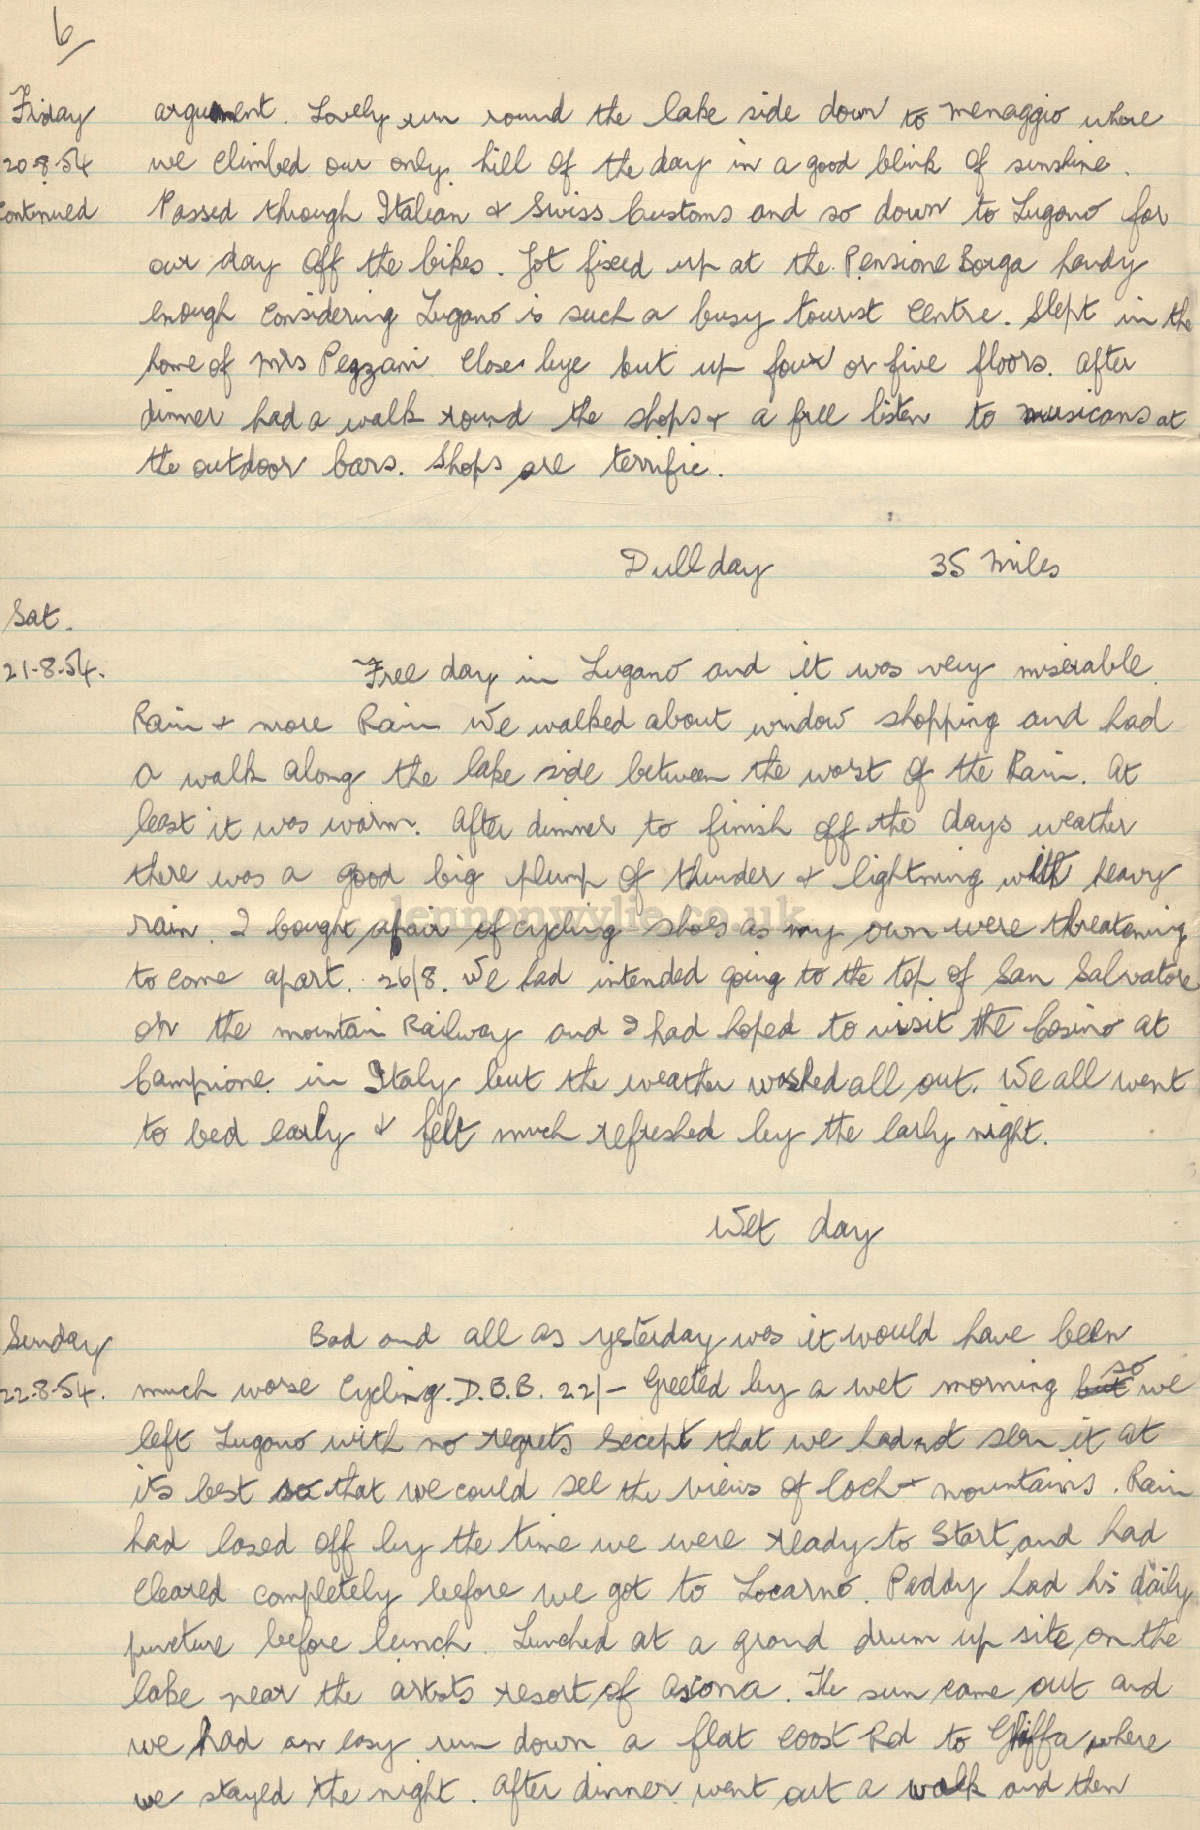 6/
Friday argument. Lovely run round the lake side down to Menaggio where
20.8.54 we climbed our only hill of the day in a good blink of sunshine.
Continued Passed through Italian & Swiss Customs and so down to Lugano for
our day off the bikes. Got fixed up at the Pensione Borga handy
enough considering Lugano is such a busy tourist centre. Slept in the
home of Mrs Pezzani close bye but up four or five floors. After
dinner had a walk round the shops & a free listen to musicans at
the outdoor bars. Shops are terrific.
Dull day 35 Miles
Sat.
21-8-54. Free day in Lugano and it was very miserable.
Rain & more Rain We walked about window shopping and had
a walk along the lake side between the worst of the Rain. At
least it was warm. After dinner to finish off the days weather
there was a good big plump of thunder & lightning with heavy
rain. I bought a pair of cycling shoes as my own were threatening
lennonwylie.co.uk
to come apart. 26/8. We had intended going to the top of San Salvatore
on the mountain Railway and I had hoped to visit the Casino at
Campione in Italy but the weather washed all out. We all went
to bed early & felt much refreshed by the early night.
Wet day
Sunday Bad and all as yesterday was it would have been
22-8-54. much worse Cycling. D.B.B. 22/- Greeted by a wet morning but so we
left Lugano with no regrets except that we had not seen it at
its best so that we could see the views of loch & mountains. Rain
had eased off by the time we were ready to start and had
cleared completely before we got to Locarno. Paddy had his daily
puncture before lunch. Lunched at a grand drum up site on the
lake near the artists resort of Ascona. The sun came out and
we had an easy run down a flat coast Rd to Ghiffa where
we stayed the night. After dinner went out a walk and then